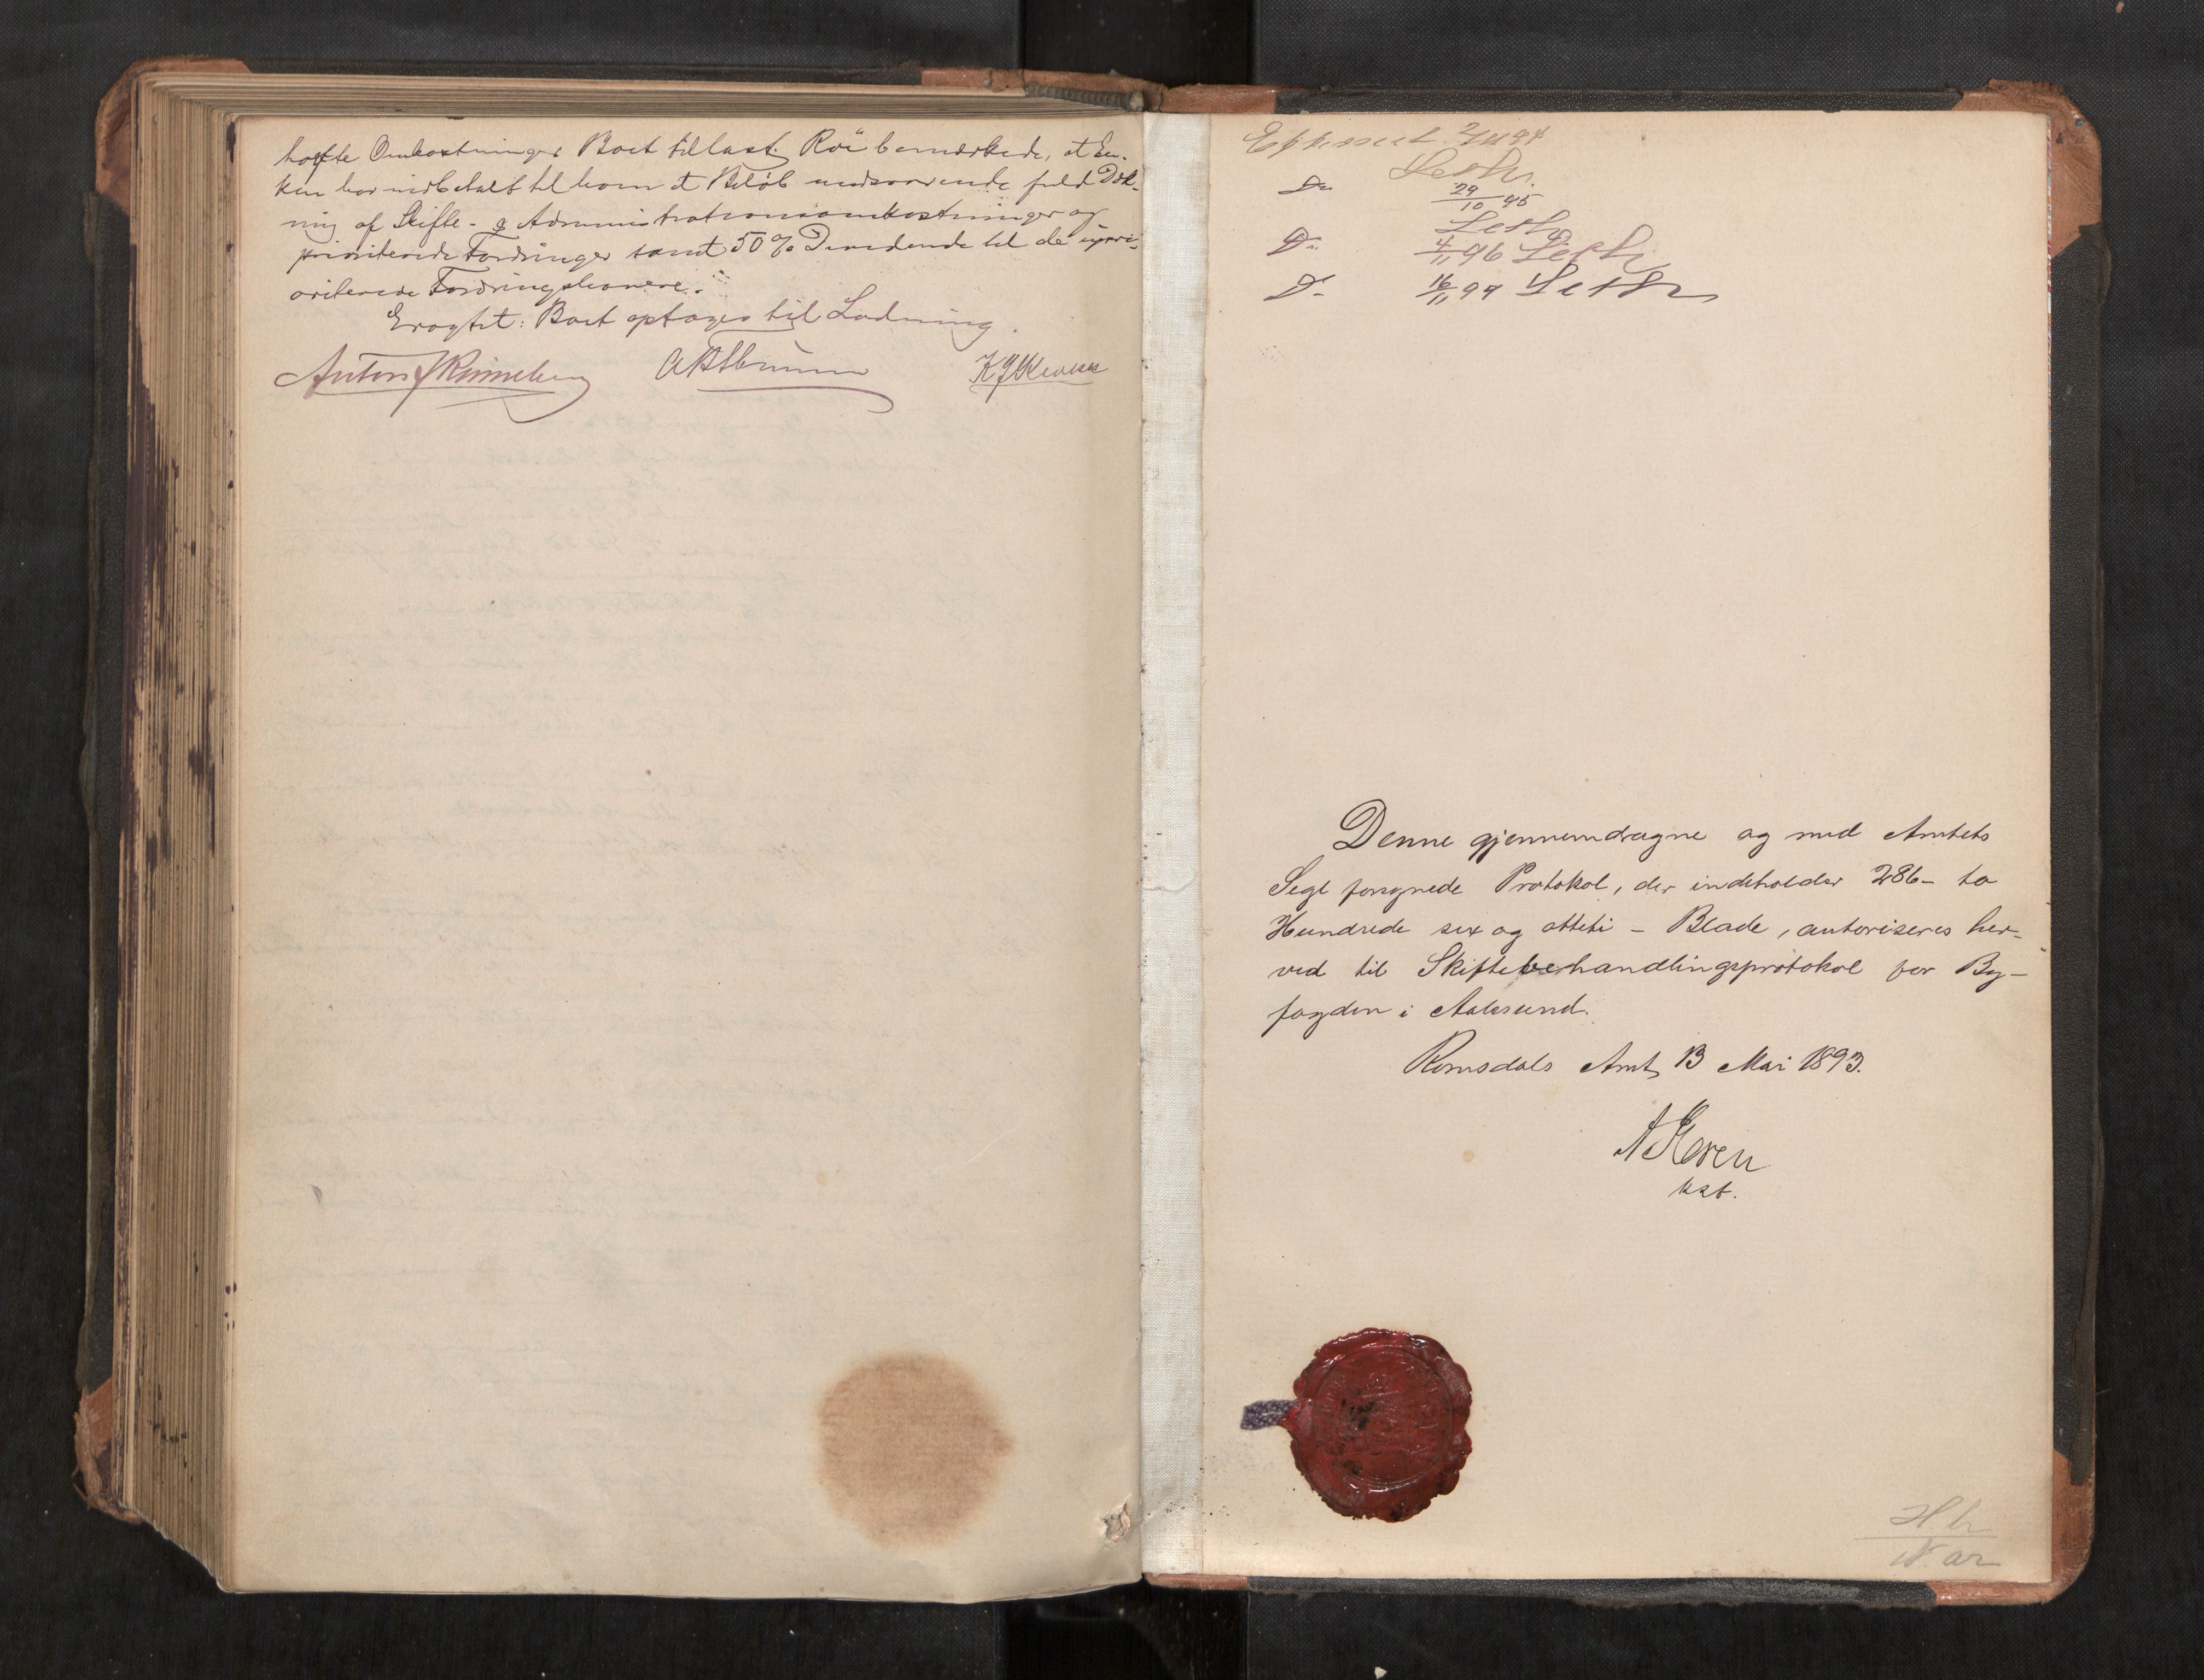 hafte Omkostninger Boet tillast. Röi bemærkede, at En-
ken har indbetalt til ham et Beløb modsvarende fuld Dæk-
ning af Skifte- og Administrationsomkostninger og
prioriterede Fordringer samt 50 % Dividende til de upri-
oriterede Fordringshavere.
Eragtet: Boet optages til Lodning.
Anton J Rönneberg
K J Kleven
D°
29/10 95
Leth
D° 4/11 96 Leth
D° 16/11 97 Leth
Denne gjennemdragne og med Amtets
Segl forsynede Protokol, der indeholder 286 - to
Hundrede sex og otteti - Blade, autoriseres her-
ved til Skiftebehandlingsprotokol for By-
fogden i Aalesund.
Romsdals Amt, 13 Mai 1893.
kst.